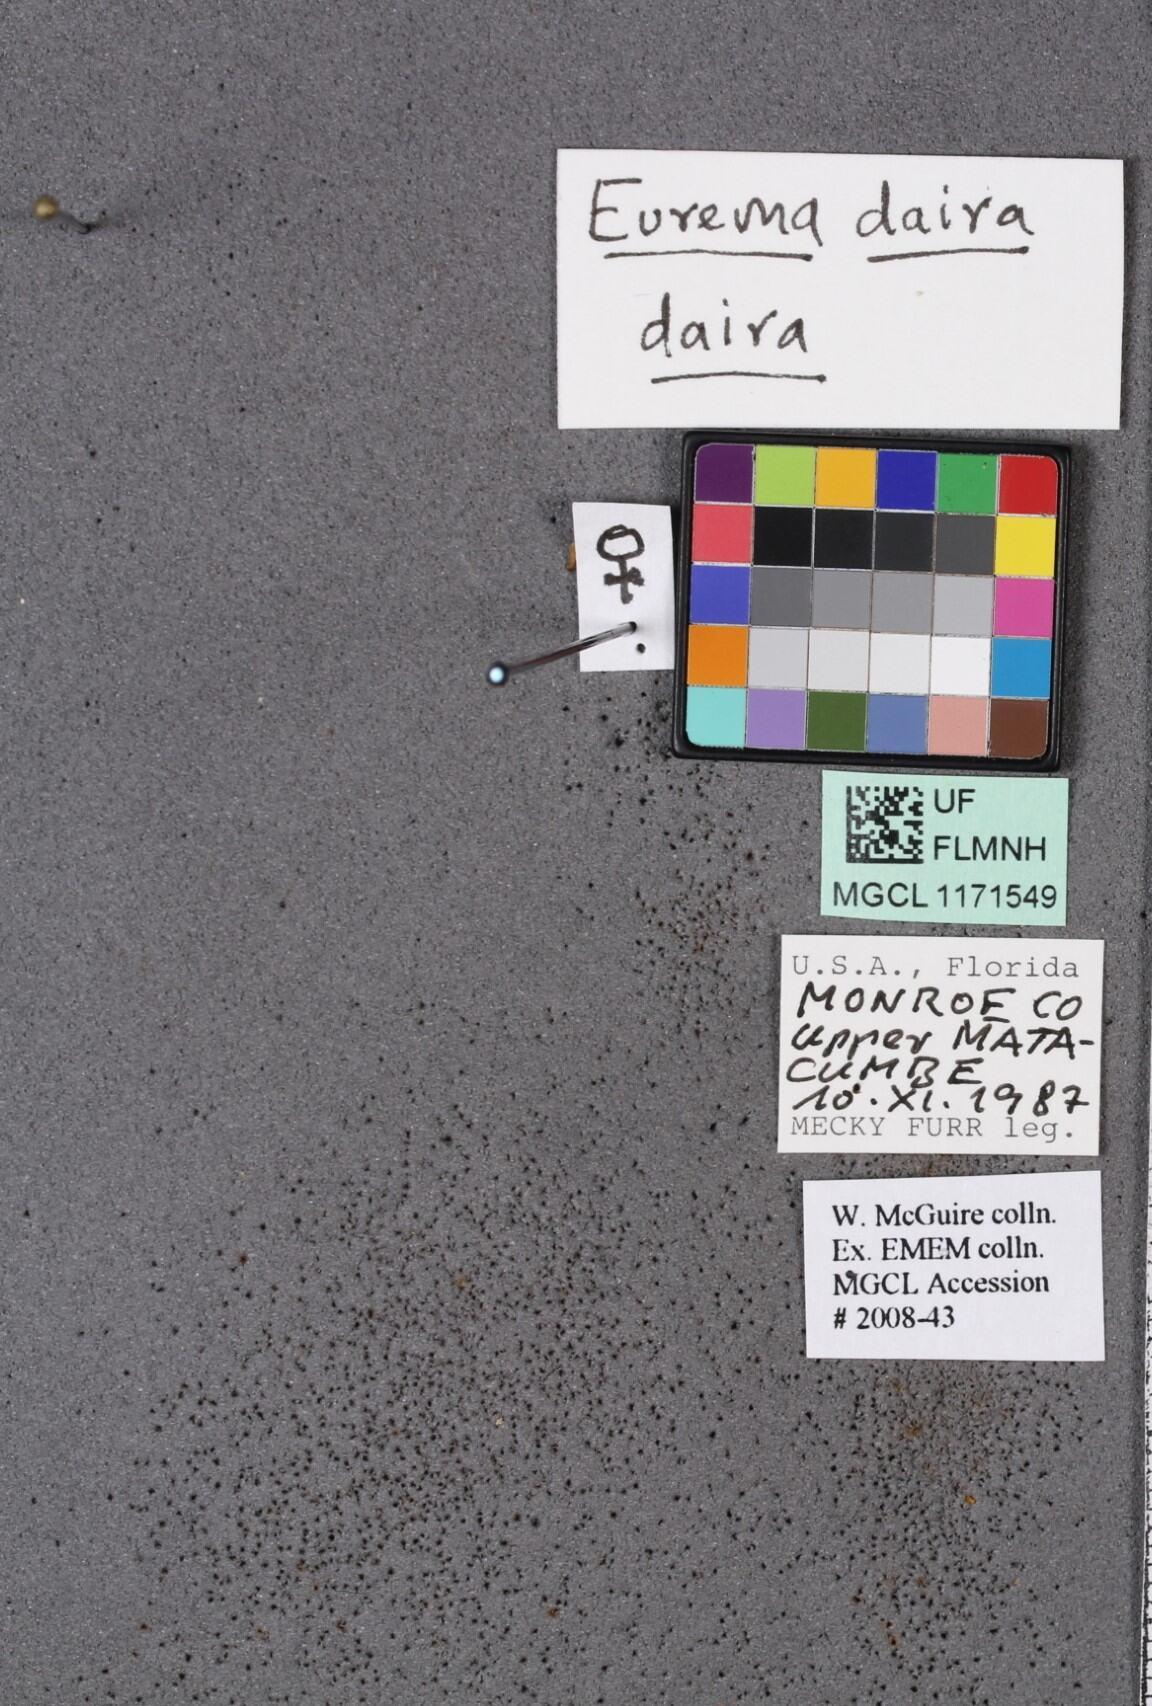 Eurema daira
daira
♀
UF
FLMNH
MGCL 1171549
U.S.A., Florida
MONROE CO
upper MATA-
CUMBE
10.XI.1987
MECKY FURR leg.
W. McGuire colln.
Ex. EMEM colln.
MGCL Accession
# 2008-43